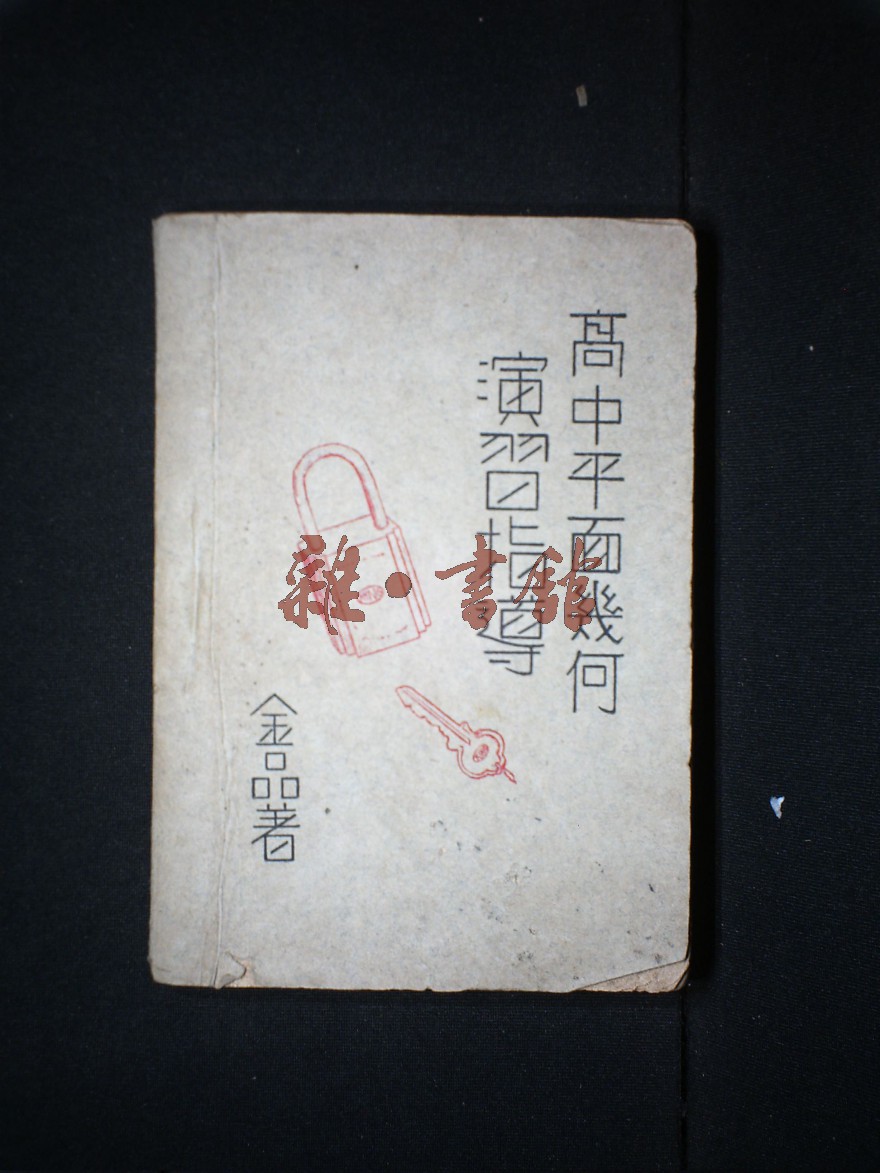 高中平面幾何
演習指導
金品著
雜·書館